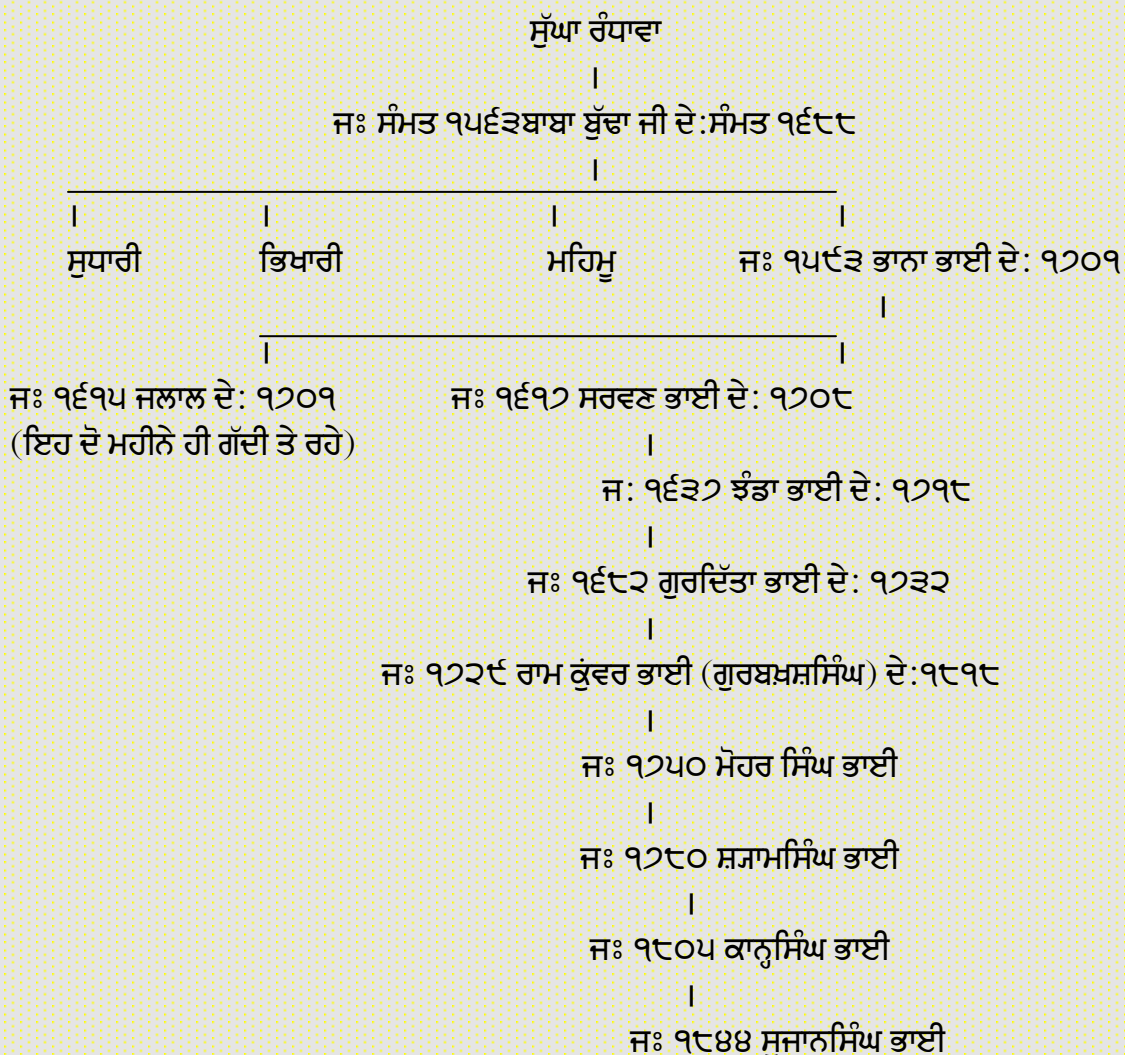 ਸੁੱਘਾ ਰੰਧਾਵਾ
।
ਜਃ ਸੰਮਤ ੧੫੬੩ਬਾਬਾ ਬੁੱਢਾ ਜੀ ਦੇ:ਸੰਮਤ ੧੬੮੮
।
। । । ।
ਸੁਧਾਰੀ ਭਿਖਾਰੀ ਮਹਿਮੂ ਜਃ ੧੫੯੩ ਭਾਨਾ ਭਾਈ ਦੇ: ੧੭੦੧
।
। ।
ਜਃ ੧੬੧੫ ਜਲਾਲ ਦੇ: ੧੭੦੧ ਜਃ ੧੬੧੭ ਸਰਵਣ ਭਾਈ ਦੇ: ੧੭੦੮
(ਇਹ ਦੋ ਮਹੀਨੇ ਹੀ ਗੱਦੀ ਤੇ ਰਹੇ) ।
ਜ: ੧੬੩੭ ਝੰਡਾ ਭਾਈ ਦੇ: ੧੭੧੮
।
ਜਃ ੧੬੮੨ ਗੁਰਦਿੱਤਾ ਭਾਈ ਦੇ: ੧੭੩੨
।
ਜਃ ੧੭੨੯ ਰਾਮ ਕੁੰਵਰ ਭਾਈ (ਗੁਰਬਖ਼ਸ਼ਸਿੰਘ) ਦੇ:੧੮੧੮
।
ਜਃ ੧੭੫੦ ਮੋਹਰ ਸਿੰਘ ਭਾਈ
।
ਜਃ ੧੭੮੦ ਸ਼੍ਯਾਮਸਿੰਘ ਭਾਈ
।
ਜਃ ੧੮੦੫ ਕਾਨ੍ਹਸਿੰਘ ਭਾਈ
।
ਜਃ ੧੮੪੪ ਸੁਜਾਨਸਿੰਘ ਭਾਈ